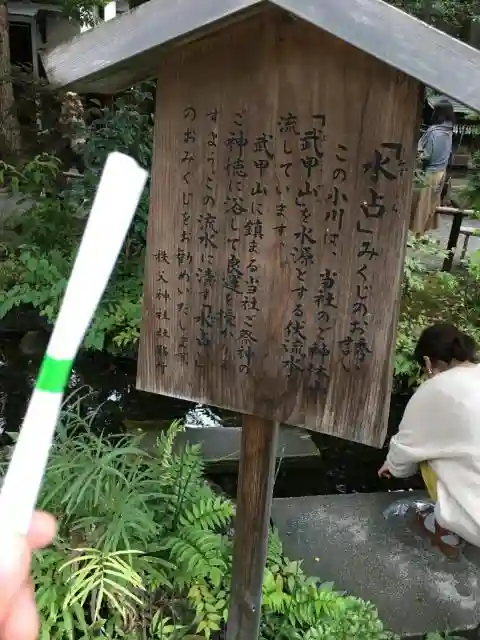 「水占」みくじのお奨め
この小川は、当社のご神体山
「武甲山」を水源とする伏流水で
流しています。
武甲山に鎮まる当社ご祭神の
ご神徳に浴して良運を授かりま
すよう、この流水に濤す「水占」
のおみくじをお勧めいたします。
秩父神社社務所